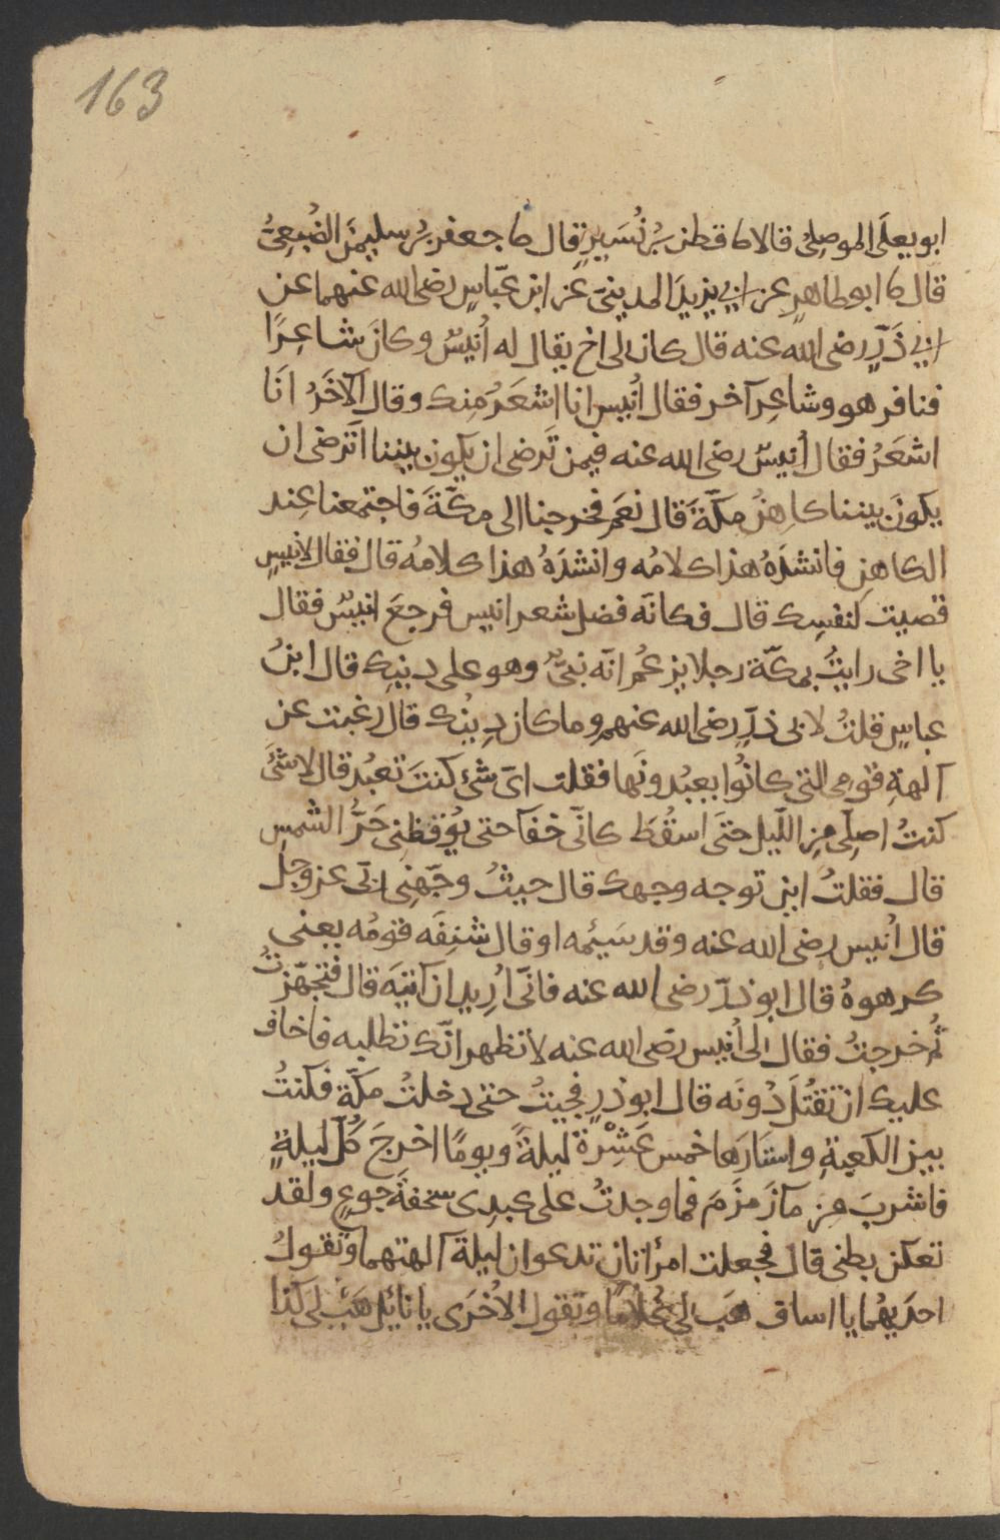 163
ابو يعلَى الموصِلىُّ قالا كا قطن بنُ نُسَيرٍ قال كا جعفر بنُ سليمٰنَ الضُبعِىُّ
قال كا ابو طاهرٍ عن ابى يزيدَ المدينىّ عَن ابن عبّاسٍ رضى الله عنهما عن
ابى ذَرٍّ رضى الله عنه قال كان لى اخ يقال له أُنيسٌ وكانَ شاعِرًا
فنافر هو وشاعِر آخر فقال أُنيس انا اشعَرُ مِنك وقال الآخَرُ انَا
اشعَرُ فقال أُنيسٌ رضى الله عنه فيمن تَرضى ان يكون بيننا اَترضى ان
يكونَ بيننا كاهِنُ مكّةَ قال نعَم فخرجنا الى مكّةَ فاجتمعنا عِند
الكاهنِ فانشدَهُ هذا كلامُه وانشدَهُ هذا كلامُه قال فقال لانيسٍ
قضيت لنفسِك قال فكانّه فضل شعر انيس فرجعَ انيسٌ فقال
يا اخى رايتُ بمكّة رجلا يزعُم انّه نبىٌّ وهو على دينِك قال ابنُ
عباسٍ قلتُ لابى ذرٍّ رضى الله عنهم وما كان دِينُك قال رغبت عن
آلهةِ قومِى التى كانُوا يعبُدونَها فقلت اىّ شئ كنتَ تعبُد قال لا شئَ
كنتُ اصلِّى مِن اللّيل حتىَ اسقُطَ كانّى خفآ حتى يُوقظِنى حَرُّ الشمسِ
قال فقلتُ اين توجه وجهك قال حيثُ وجّهنِى ربّى عز وجلّ
قال أُنيس رضى الله عنه وقد سَيئمه او قال شنِفَه قومُه يعنى
كرهوهُ قال ابو ذرّ رضى الله عنه فانّى أُرِيد ان آتيَه قال فتجهّزتُ
ثُم خرجتُ فقال لى أُنيس رضى الله عنه لا تظهر انّك تطلبه فاخاف
عليك ان تقتُلَ دُونَه قال ابو ذرٍ فجيتُ حتى دخلتُ مكّة فكنتُ
بين الكعبةِ واستارَها خمس عَشْرةَ ليلةً ويومًا اخرجَ كُلّ ليلةٍ
فاشربَ مِن مآ زَمزَمَ فما وجدتُ على كبدِى سخفةَ جوعٍ ولقد
تعكن بطنى قال فجعلت امرأتانِ تدعوان ليلةً آلهتهما وتقولُ
احدَيهُما يا اساف هَب لى غُلامًا وتقول الاُخرَى يا نائِل هَب لى كذا